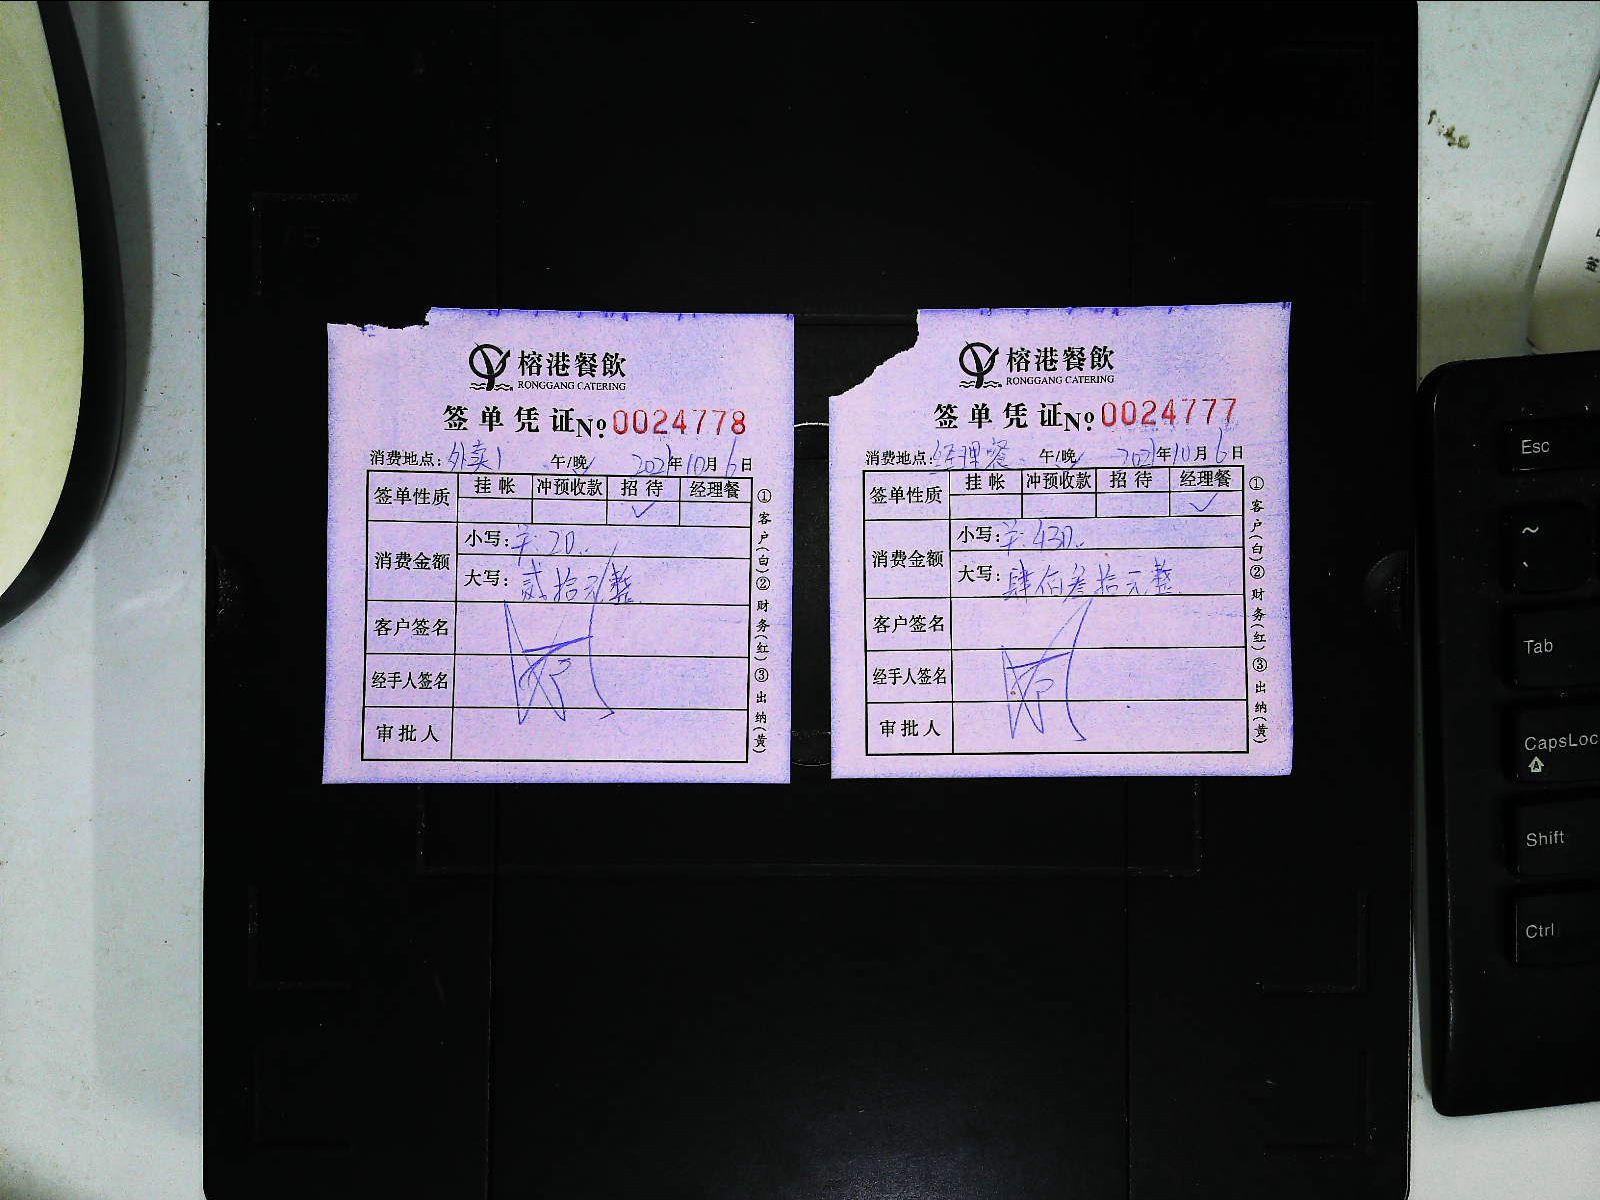 榕港餐飲
RONGGANG CATERING
签单凭证 No 0024778
消费地点: 外卖1 午/晚 2021年10月6日
签单性质 挂帐 冲预收款 招待 经理餐
✓
消费金额
小写: ¥:20..
大写: 贰拾元整
客户签名
经手人签名
审批人
①客户(白)②财务(红)③出纳(黄)
榕港餐飲
RONGGANG CATERING
签单凭证 No 0024777
消费地点: 经理餐 午/晚 2021年10月6日
签单性质 挂帐 冲预收款 招待 经理餐
✓
消费金额
小写: ¥:430..
大写: 肆佰叁拾元整
客户签名
经手人签名
审批人
①客户(白)②财务(红)③出纳(黄)
Esc
~
Tab
CapsLoc
A
Shift
Ctrl